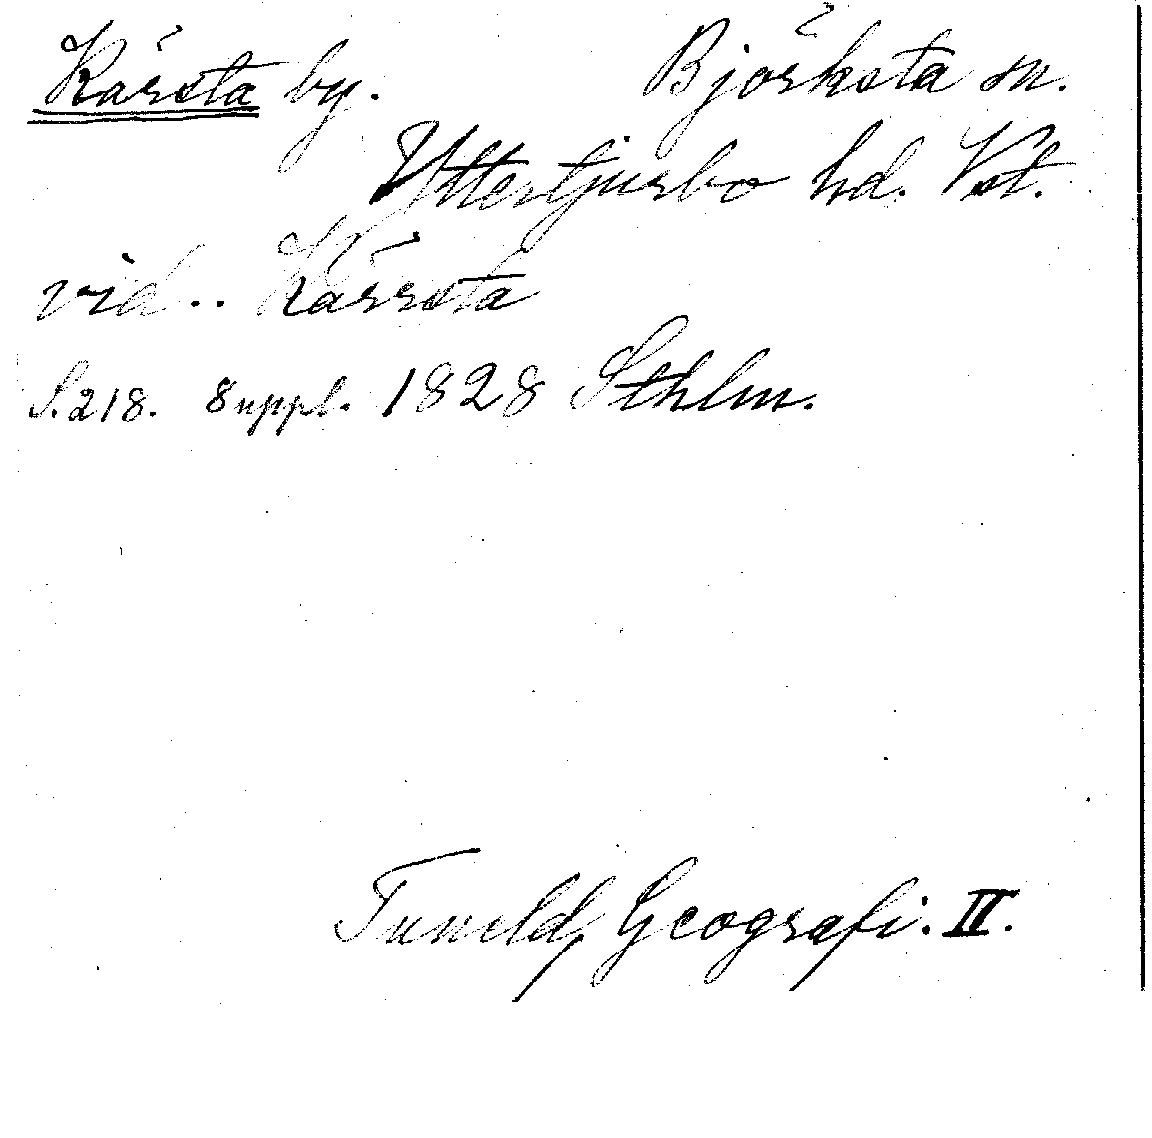 Kärsta by. Björksta sn.
Yttertjurbo hd. Vst.
vid .. Kärrsta
S. 218. Suppl. 1828 Sthlm.
Tuneld, Geografi. II.